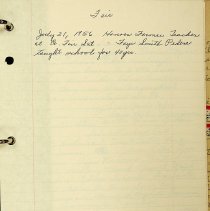 Fair
July 21, 1956 Honor Former Teacher
at Fair Faye Smith
taught school for 40 yrs